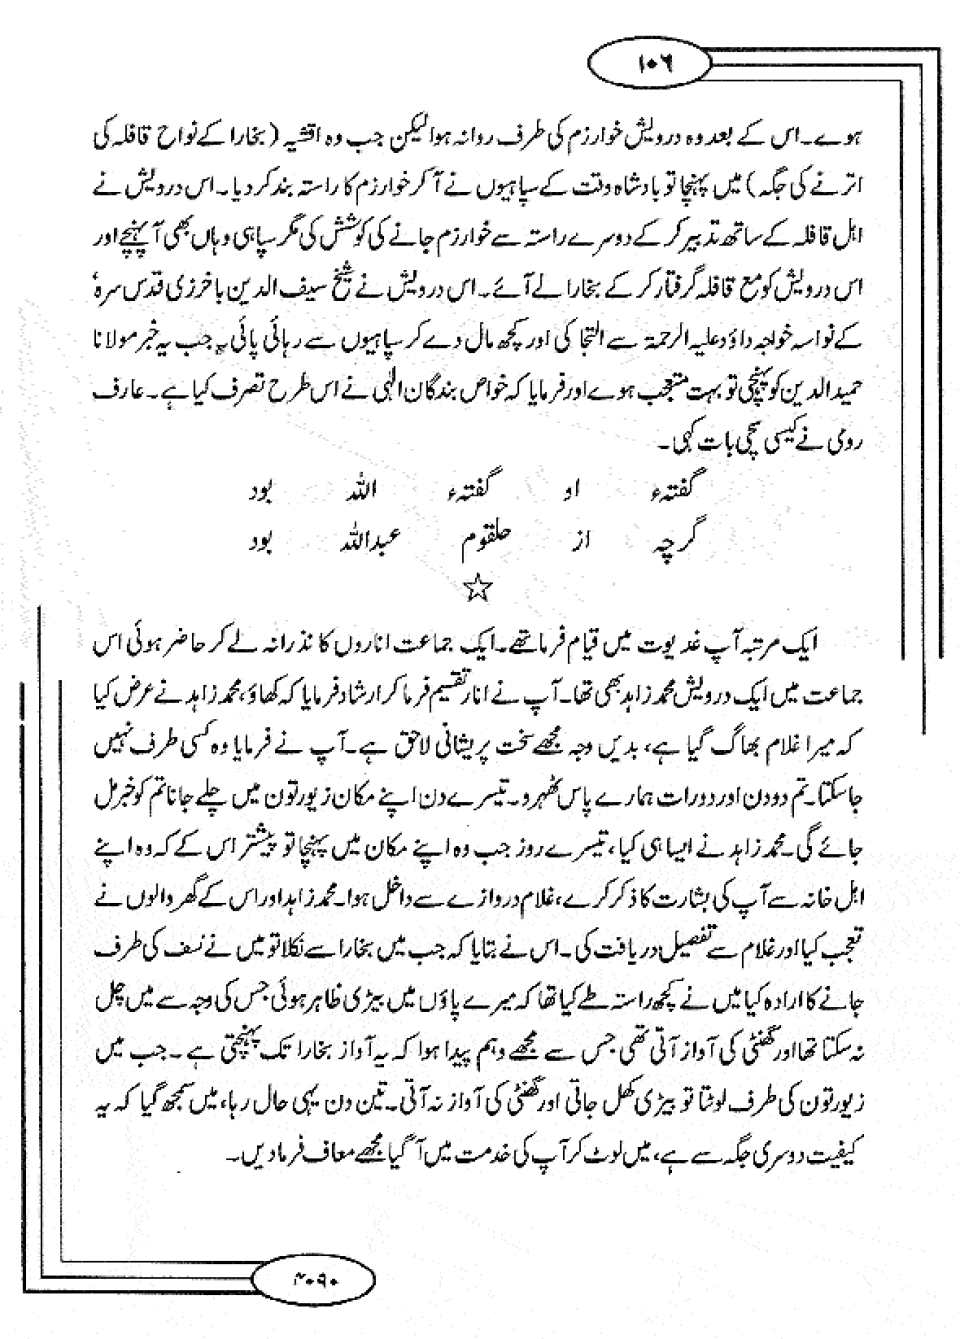 ۱۰۶
ہوے۔ اس کے بعد وہ درویش خوارزم کی طرف روانہ ہوا لیکن جب وہ اقشیہ (بخارا کے نواح قافلہ کی
اترنے کی جگہ) میں پہنچا تو بادشاہ وقت کے سپاہیوں نے آ کر خوارزم کا راستہ بند کر دیا۔ اس درویش نے
اہل قافلہ کے ساتھ تدبیر کر کے دوسرے راستہ سے خوارزم جانے کی کوشش کی مگر سپاہی وہاں بھی آ پہنچے اور
اس درویش کو مع قافلہ گرفتار کر کے بخارا لے آئے۔ اس درویش نے شیخ سیف الدین باخرزی قدس سرہٗ
کے نواسہ خواجہ داؤد علیہ الرحمۃ سے التجا کی اور کچھ مال دے کر سپاہیوں سے رہائی پائی۔ جب یہ خبر مولانا
حمید الدین کو پہنچی تو بہت متعجب ہوے اور فرمایا کہ خواص بندگان الٰہی نے اس طرح تصرف کیا ہے۔ عارف
رومی نے کیسی سچی بات کہی۔
گفتہء او گفتہء اللہ بود
گرچہ از حلقوم عبداللہ بود
ایک مرتبہ آپ غدیوت میں قیام فرما تھے۔ ایک جماعت اناروں کا نذرانہ لے کر حاضر ہوئی اس
جماعت میں ایک درویش محمد زاہد بھی تھا۔ آپ نے انار تقسیم فرما کر ارشاد فرمایا کہ کھاؤ، محمد زاہد نے عرض کیا
کہ میرا غلام بھاگ گیا ہے، بدیں وجہ مجھے سخت پریشانی لاحق ہے۔ آپ نے فرمایا وہ کسی طرف نہیں
جا سکتا۔ تم دو دن اور دو رات ہمارے پاس ٹھہرو۔ تیسرے دن اپنے مکان زیورتون میں چلے جانا تم کو خبر مل
جائے گی۔ محمد زاہد نے ایسا ہی کیا، تیسرے روز جب وہ اپنے مکان میں پہنچا تو پیشتر اس کے کہ وہ اپنے
اہل خانہ سے آپ کی بشارت کا ذکر کرے، غلام دروازے سے داخل ہوا۔ محمد زاہد اور اس کے گھر والوں نے
تعجب کیا اور غلام سے تفصیل دریافت کی۔ اس نے بتایا کہ جب میں بخارا سے نکلا تو میں نے نسف کی طرف
جانے کا ارادہ کیا میں نے کچھ راستہ طے کیا تھا کہ میرے پاؤں میں بیڑی ظاہر ہوئی جس کی وجہ سے میں چل
نہ سکتا تھا اور گھنٹی کی آواز آتی تھی جس سے مجھے وہم پیدا ہوا کہ یہ آواز بخارا تک پہنچتی ہے۔ جب میں
زیورتون کی طرف لوٹتا تو بیڑی کھل جاتی اور گھنٹی کی آواز نہ آتی۔ تین دن یہی حال رہا، میں سمجھ گیا کہ یہ
کیفیت دوسری جگہ سے ہے، میں لوٹ کر آپ کی خدمت میں آ گیا مجھے معاف فرما دیں۔